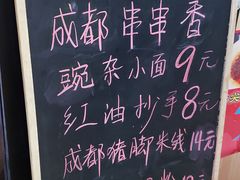 成都串串香
豌杂小面9元
红油抄手8元
成都猪脚米线14元